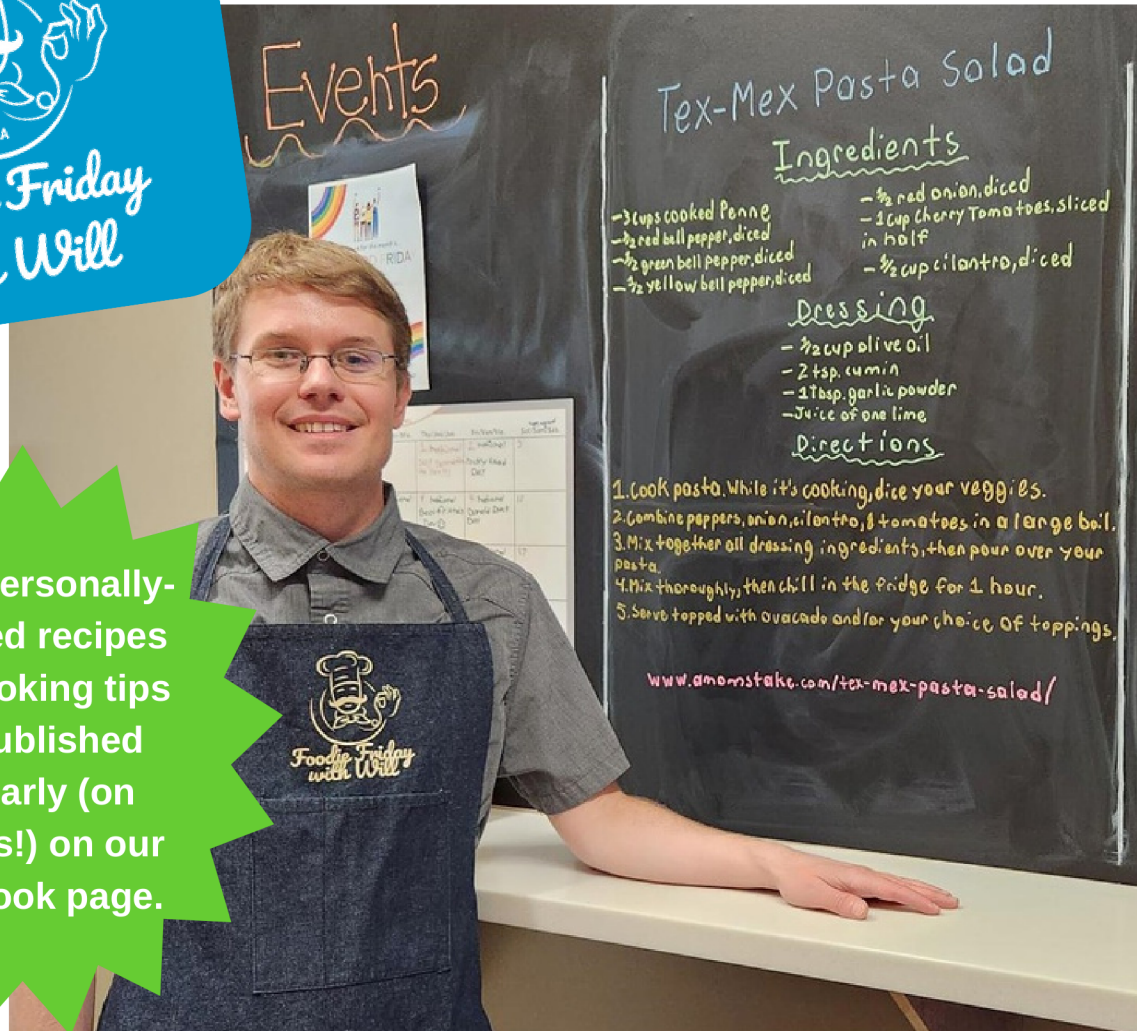 Friday
Will
Events
Tex-Mex Pasta Salad
Ingredients
-3cups cooked Penne
-½ red bell pepper, diced
-½ green bell pepper, diced
-½ yellow bell pepper, diced
-½ red onion, diced
-1cup Cherry Tomatoes, sliced
in half
-½ cup cilantro, diced
Dressing
-½ cup olive oil
-2 tsp. cumin
-1Tbsp. garlic powder
-Juice of one lime
Directions
1. Cook pasta. While it's cooking, dice your veggies.
2. Combine peppers, onion, cilantro, & tomatoes in a large boil.
3. Mix together all dressing ingredients, then pour over your
pasta.
4. Mix thoroughly, then chill in the fridge for 1 hour.
5. Serve topped with avacado and/or your choice of toppings.
www.amomstake.com/tex-mex-pasta-salad/
ersonally-
ed recipes
oking tips
ublished
arly (on
s!) on our
ook page.
Foodie Friday
with Will